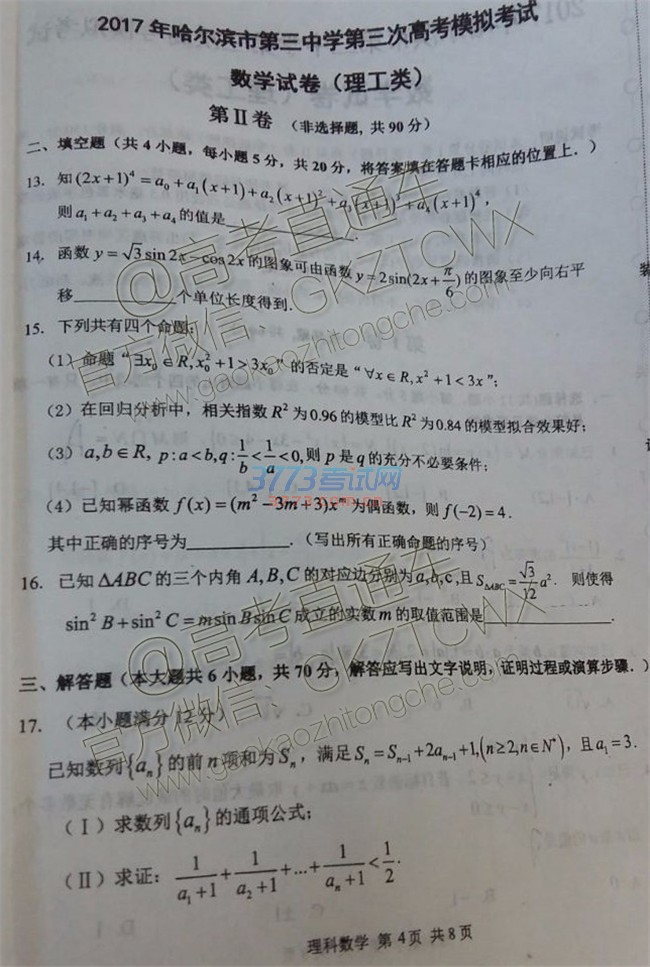 2017年哈尔滨市第三中学第三次高考模拟考试
数学试卷（理工类）
第Ⅱ卷 （非选择题, 共 90 分）
二、填空题（共 4 小题，每小题 5 分，共 20 分，将答案填在答题卡相应的位置上．）
13. 知 (2x+1)⁴ = a₀ + a₁(x+1) + a₂(x+1)² + a₃(x+1)³ + a₄(x+1)⁴，
则 a₁ + a₂ + a₃ + a₄ 的值是____________.
14. 函数 y = √3 sin 2x − cos 2x 的图象可由函数 y = 2sin(2x + π/6) 的图象至少向右平
移____________个单位长度得到.
15. 下列共有四个命题:
(1) 命题“∃x₀ ∈ R, x₀² + 1 > 3x₀”的否定是“∀x ∈ R, x² + 1 < 3x”;
(2) 在回归分析中，相关指数 R² 为 0.96 的模型比 R² 为 0.84 的模型拟合效果好;
(3) a,b ∈ R, p : a < b, q : 1/b < 1/a < 0, 则 p 是 q 的充分不必要条件;
(4) 已知幂函数 f(x) = (m² − 3m + 3)x^m 为偶函数，则 f(−2) = 4.
其中正确的序号为____________.（写出所有正确命题的序号）
16. 已知 ΔABC 的三个内角 A, B, C 的对应边分别为 a,b,c ,且 S_ΔABC = √3/12 a². 则使得
sin² B + sin² C = m sin B sin C 成立的实数 m 的取值范围是____________.
三、解答题（本大题共 6 小题，共 70 分，解答应写出文字说明，证明过程或演算步骤．）
17. （本小题满分 12 分）
已知数列{aₙ}的前 n 项和为 Sₙ，满足 Sₙ = Sₙ₋₁ + 2aₙ₋₁ + 1, (n ≥ 2, n ∈ N*)，且 a₁ = 3.
（Ⅰ）求数列{aₙ}的通项公式;
（Ⅱ）求证: 1/(a₁+1) + 1/(a₂+1) + ... + 1/(aₙ+1) < 1/2.
理科数学 第 4 页 共 8 页
@高考直通车
官方微信: GKZTCWX
www.gaokaozhitongche.com
3773考试网
@高考直通车
官方微信: GKZTCWX
www.gaokaozhitongche.com